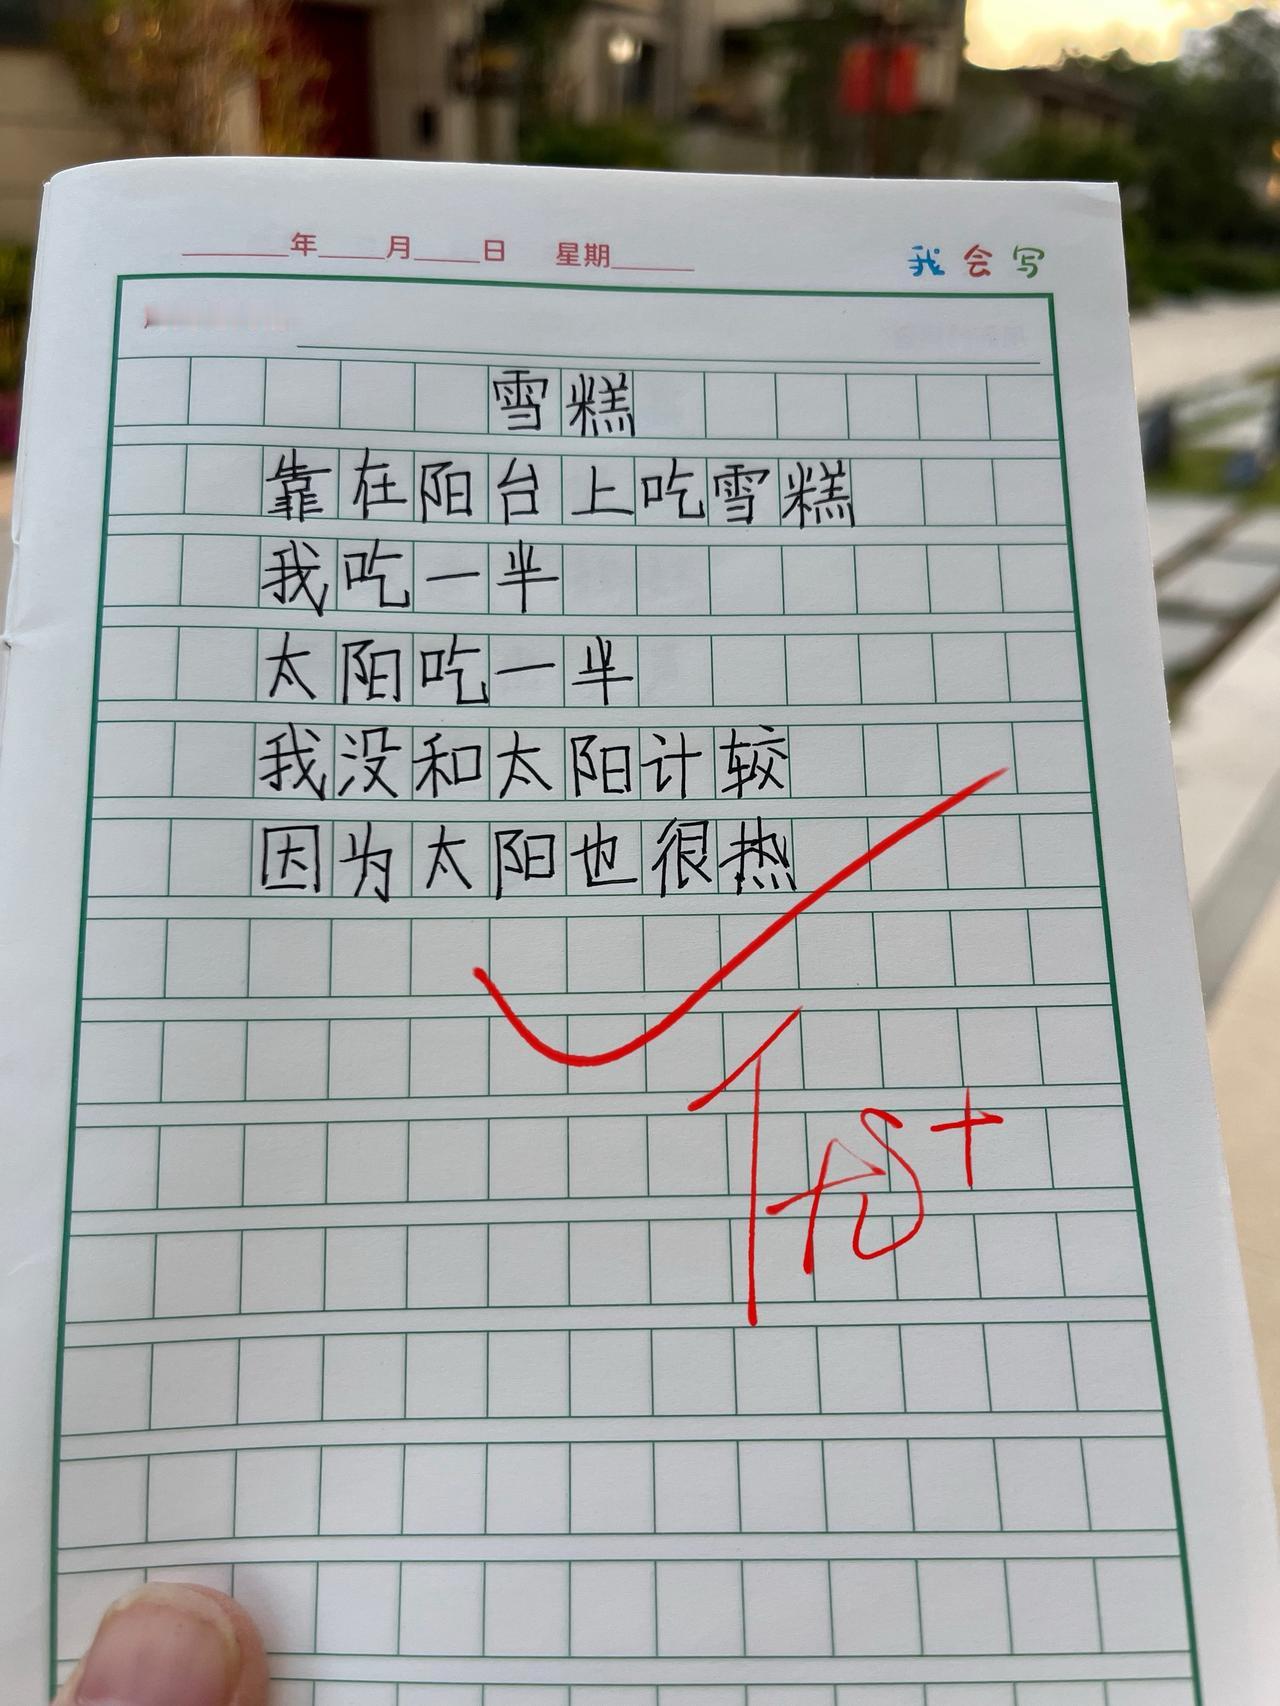 年 月 日 星期 我会写
雪糕
靠在阳台上吃雪糕
我吃一半
太阳吃一半
我没和太阳计较
因为太阳也很热